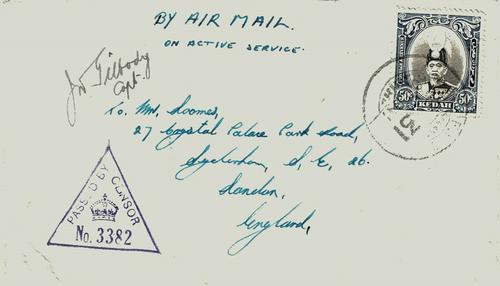 BY AIR MAIL.
ON ACTIVE SERVICE.
J W Gilbody
Capt.
50c KEDAH 50c
To. Mrs. Soomes,
27 Crystal Palace Park Road,
Sydenham, S. E. 26.
London,
England,
PASSED BY CENSOR
No. 3382